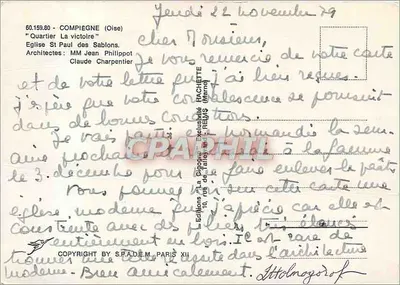 Jeudi 22 novembre 79
60.159.80 - COMPIEGNE (Oise)
"Quartier La victoire"
Eglise St Paul des Sablons.
Architectes : MM Jean Philippot
Claude Charpentier
Cher Monsieur,
Je vous remercie de votre carte
et de votre lettre que j'ai bien reçues.
J'espère que votre convalescence se poursuit
dans de bonnes conditions.
Je vais partir en Normandie la sem-
aine prochaine
le 3 décembre pour me faire enlever le plâtre
Vous pouvez voir sur cette carte une
église moderne que j'apprécie car elle est
construite avec des piliers très élancés
entièrement en bois. Il est rare de
trouver une telle réussite dans l'architecture
moderne. Bien amicalement.
COPYRIGHT BY S.P.A.D.E.M. PARIS XII
CPAPHIL